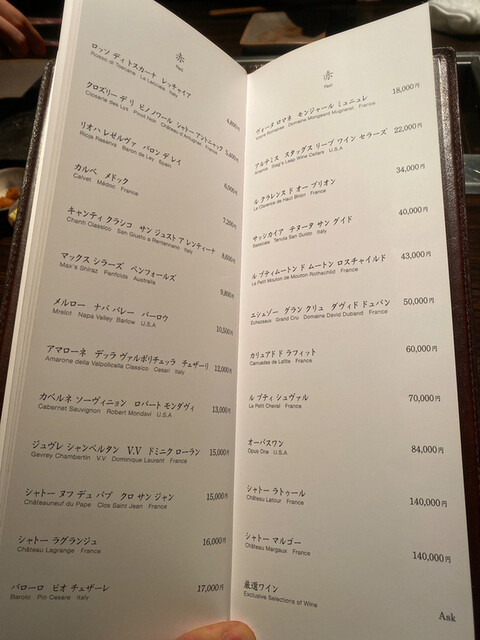 赤
Red
ロッソ ディ トスカーナ レッチャイア
Rosso di Toscana La Lecciaia Italy
4,800円
クロズリー デ リ ピノ ノワール シャトー アントニャック
Closerie des Lys Pinot Noir Château d'Antugnac France
5,400円
リオハ レゼルヴァ バロン デ レイ
Rioja Reserva Baron de Ley Spain
6,000円
カルベ メドック
Calvet Médoc France
7,200円
キャンティ クラシコ サン ジュスト ア レンティーナ
Chianti Classico San Giusto a Rentennano Italy
8,800円
マックス シラーズ ペンフォールズ
Max's Shiraz Penfolds Australia
9,800円
メルロー ナパ バレー バーロウ
Mrelot Napa Valley Barlow U.S.A
10,500円
アマローネ デッラ ヴァルポリチェッラ チェザーリ 12,000円
Amarone della Valpolicella Classico Cesari Italy
カベルネ ソーヴィニョン ロバート モンダヴィ 13,000円
Cabernet Sauvignon Robert Mondavi U.S.A
ジュヴレ シャンベルタン V.V ドミニク ローラン 15,000円
Gevrey Chambertin V.V Dominique Laurent France
シャトー ヌフ デュ パプ クロ サン ジャン 15,000円
Châteauneuf du Pape Clos Saint Jean France
シャトー ラグランジュ 16,000円
Château Lagrange France
バローロ ピオ チェザーレ 17,000円
Barolo Pio Cesare Italy
赤
Red
ヴォーヌ ロマネ モンジャール ミュニュレ 18,000円
Vosne Romanée Domaine Mongeard Mugneret France
アルテミス スタッグス リープ ワイン セラーズ 22,000円
Artemis Stag's Leap Wine Cellars U.S.A
ル クラレンス ド オー ブリオン 34,000円
Le Clarence de Haut Brion France
サッシカイア テヌータ サン グイド 40,000円
Sassicaia Tenuta San Guido Italy
ル プティ ムートン ド ムートン ロスチャイルド 43,000円
Le Petit Mouton de Mouton Rothschild France
エシェゾー グラン クリュ ダヴィド デュバン 50,000円
Echezeaux Grand Cru Domaine David Duband France
カリュアド ド ラフィット 60,000円
Carruades de Lafite France
ル プティ シュヴァル 70,000円
Le Petit Cheval France
オーパスワン 84,000円
Opus One U.S.A
シャトー ラトゥール 140,000円
Château Latour France
シャトー マルゴー 140,000円
Château Margaux France
厳選ワイン
Exclusive Selections of Wine
Ask